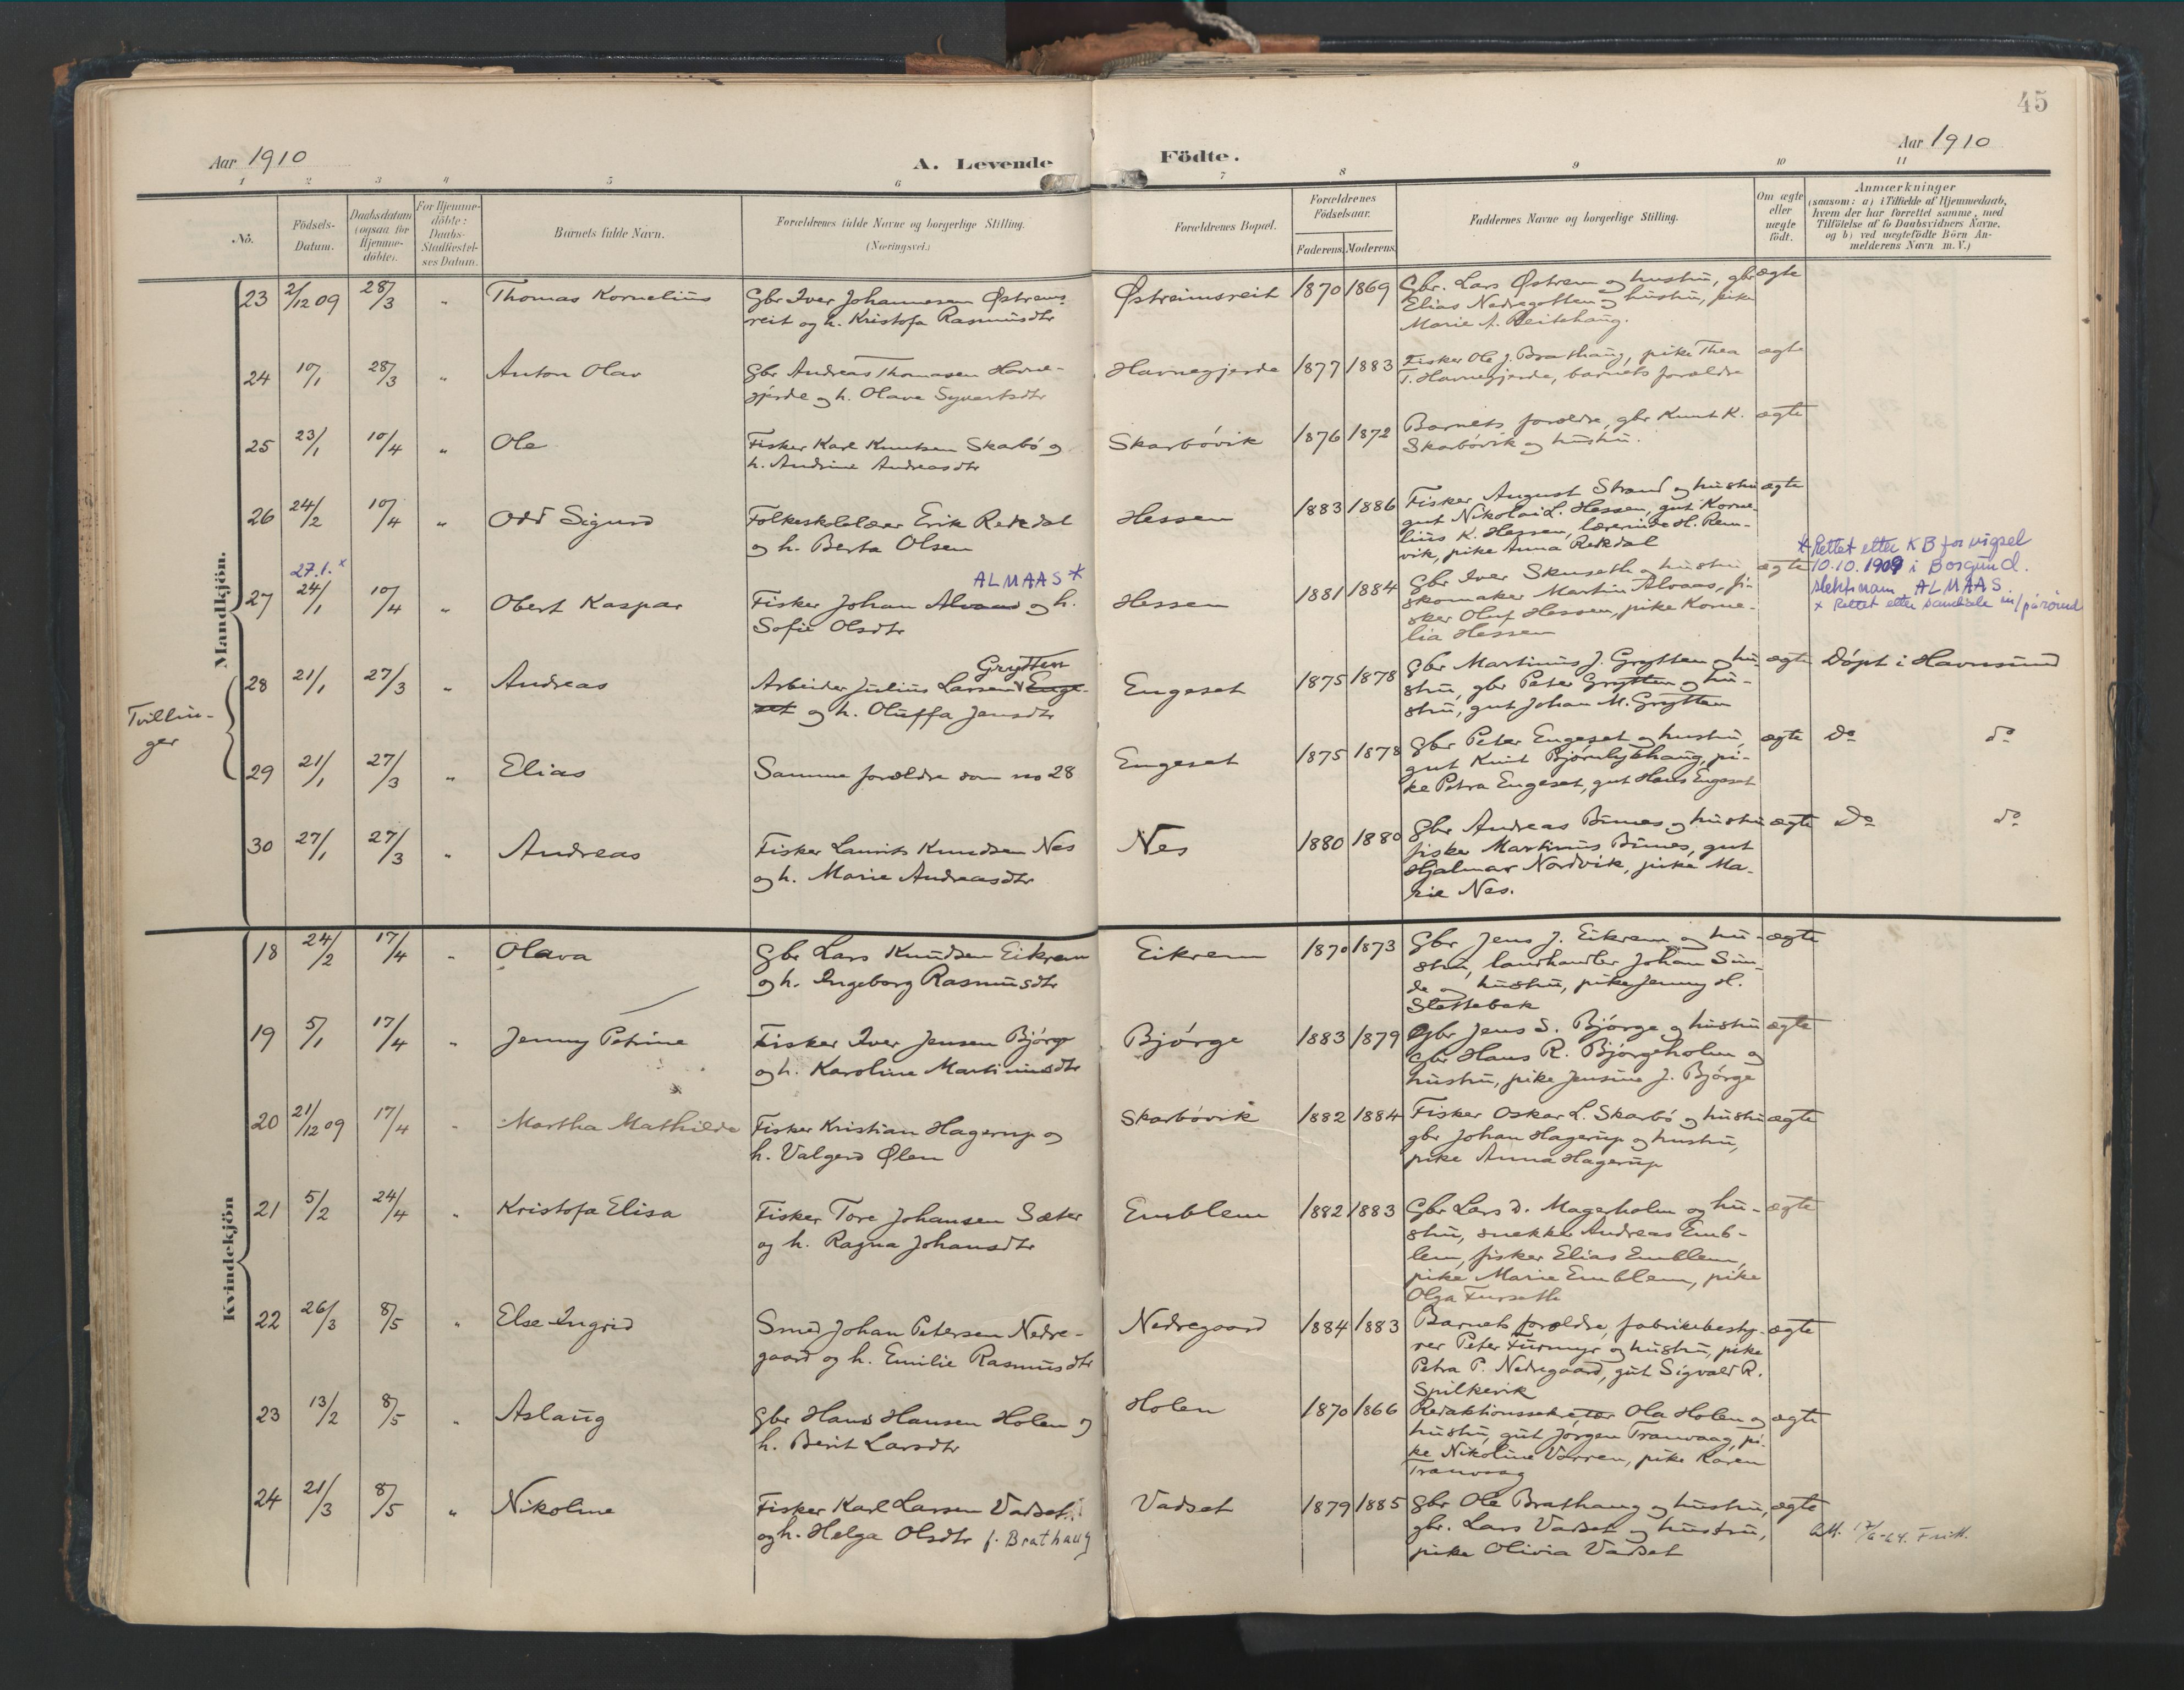 45
Aar 1910
A. Levende Födte.
Aar 1910
1 2 3 4 5 6 7 8 9 10 11
No.
Födsels-
Datum.
Daabsdatum
(ogsaa for
Hjemme-
döbte).
For Hjemme-
döbte:
Daabs-
Stadfæstel-
ses Datum.
Barnets fulde Navn.
Forældrenes fulde Navne og borgerlige Stilling.
(Næringsvei.)
Forældrenes Bopæl.
Forældrenes
Födselsaar.
Faderens. Moderens.
Faddernes Navne og borgerlige Stilling.
Om ægte
eller
uægte
født.
Anmærkninger
(saasom: a) i Tilfælde af Hjemmedaab,
hvem der har forrettet samme, med
Tilföielse af to Daabsvidners Navne,
og b) ved uægtefödte Börn An-
melderens Navn m. V.)
Mandkjön.
23 2/12 09 28/3 " Thomas Kornelius
Gbr Iver Johannesen Østrems-
reit og h. Kristofa Rasmusdtr
Østreimsreit 1870 1869
Gbr. Lars Østrem og hustru, gbr
Elias Nedregotten og hustru, pike
Marie A. Reitehaug.
ægte
24 10/1 28/3 " Anton Olav
Gbr Andreas Thomasen Havne-
gjerde og h. Olava Syvertsdtr
Havnegjerde 1877 1883
Fisker Ole J. Brathaug, pike Thea
T. Havnegjerde, barnets forældre
ægte
25 23/1 10/4 " Ole
Fisker Karl Knutsen Skarbö og
h. Andrine Andreasdtr
Skarbövik 1876 1872
Barnets forældre, gbr Knut K.
Skarbövik og hustru.
ægte
26 24/2 10/4 " Odd Sigurd
Folkeskolelærer Erik Rekdal
og h. Berta Olsen
Hessen 1883 1886
Fisker August Strand og hustru
gut Nikolai L. Hessen, gut Korne-
lius K. Hessen, lærerinde H. Rem-
vik, pike Anna Rekdal
ægte
27 27.1.x
24/1 10/4 " Obert Kaspar
ALMAAS *
Fisker Johan Alvaas og h.
Sofie Olsdtr
Hessen 1881 1884
Gbr Iver Skuseth og hustru
skomaker Martin Alvaas, fi-
sker Oluf Hessen, pike Korne-
lia Hessen
ægte
* Rettet etter KB for vigsel
10.10.1909 i Borgund.
slektsnam ALMAAS.
x Rettet etter samtale m/pårörend
Tvillin-
ger
28 21/1 27/3 " Andreas
Grytten
Arbeider Julius Larsen Enge-
set og h. Oluffa Jensdtr
Engeset 1875 1878
Gbr Martinus J. Grytten og hu-
stru, gbr Peter Grytten og hu-
stru, gut Johan M. Grytten
ægte Döpt i Havnsund
29 21/1 27/3 " Elias
Samme forældre som no 28
Engeset 1875 1878
Gbr Peter Engeset og hustru,
gut Knut Bjørnlykhaug, pi-
ke Petra Engeset, gut Hans Engeset
ægte Do do
30 27/1 27/3 " Andreas
Fisker Laurits Knudsen Nes
og h. Marie Andreasdtr
Nes 1880 1880
Gbr Andreas Bines og hustru
fisker Martinus Bines, gut
Hjalmar Nordvik, pike Ma-
rie Nes.
ægte Do do
Kvindekjön
18 24/2 17/4 " Olava
Gbr Lars Knudsen Eikrem
og h. Ingeborg Rasmusdtr
Eikrem 1870 1873
Gbr Jens J. Eikrem og hu-
stru, landhandler Johan Sun-
de og hustru, pike Jenny H.
Slettebak
ægte
19 5/1 17/4 " Jenny Petrine
Fisker Iver Jensen Bjørge
og h. Karoline Martinusdtr
Bjørge 1883 1879
Gbr Jens S. Bjørge og hustru
Gbr Hans R. Bjørgeholm og
hustru, pike Jensine J. Bjørge
ægte
20 21/12 09 17/4 " Martha Mathilde
Fisker Kristian Hagerup og
h. Valgerd Ølen
Skarbövik 1882 1884
Fisker Oskar L. Skarbö og hustru
gbr Johan Hagerup og hustru,
pike Anna Hagerup
ægte
21 5/2 24/4 " Kristofa Elisa
Fisker Tore Johansen Sæter
og h. Ragna Johansdtr
Emblem 1882 1883
Gbr Lars D. Magerholm og hu-
stru, snekker Andreas Emb-
lem, fisker Elias Emblem,
pike Marie Emblem, pike
Olga Furseth
ægte
22 26/3 8/5 " Else Ingrid
Smed Johan Petersen Nedre-
gaard og h. Emilie Rasmusdtr
Nedregaard 1884 1883
Barnets forældre, fabrikbesty-
rer Peter Furmyr og hustru, pike
Petra P. Nedregaard, gut Sigvald R.
Spilkevik
ægte
23 13/2 8/5 " Aslaug
Gbr Hans Hansen Holen og
h. Berit Larsdtr
Holen 1870 1866
Redaktionssekretær Ola Holen og
hustru, gut Jørgen Tranvaag, pi-
ke Nikoline Vorren, pike Karen
Tranvaag
ægte
24 21/3 8/5 " Nikoline
Fisker Karl Larsen Vadset
og h. Helga Olsdtr f. Brathaug
Vadset 1879 1885
Gbr Ole Brathaug og hustru,
gbr. Lars Vadset og hustru,
pike Olivia Vadset
ægte
Att. 17/6-24.